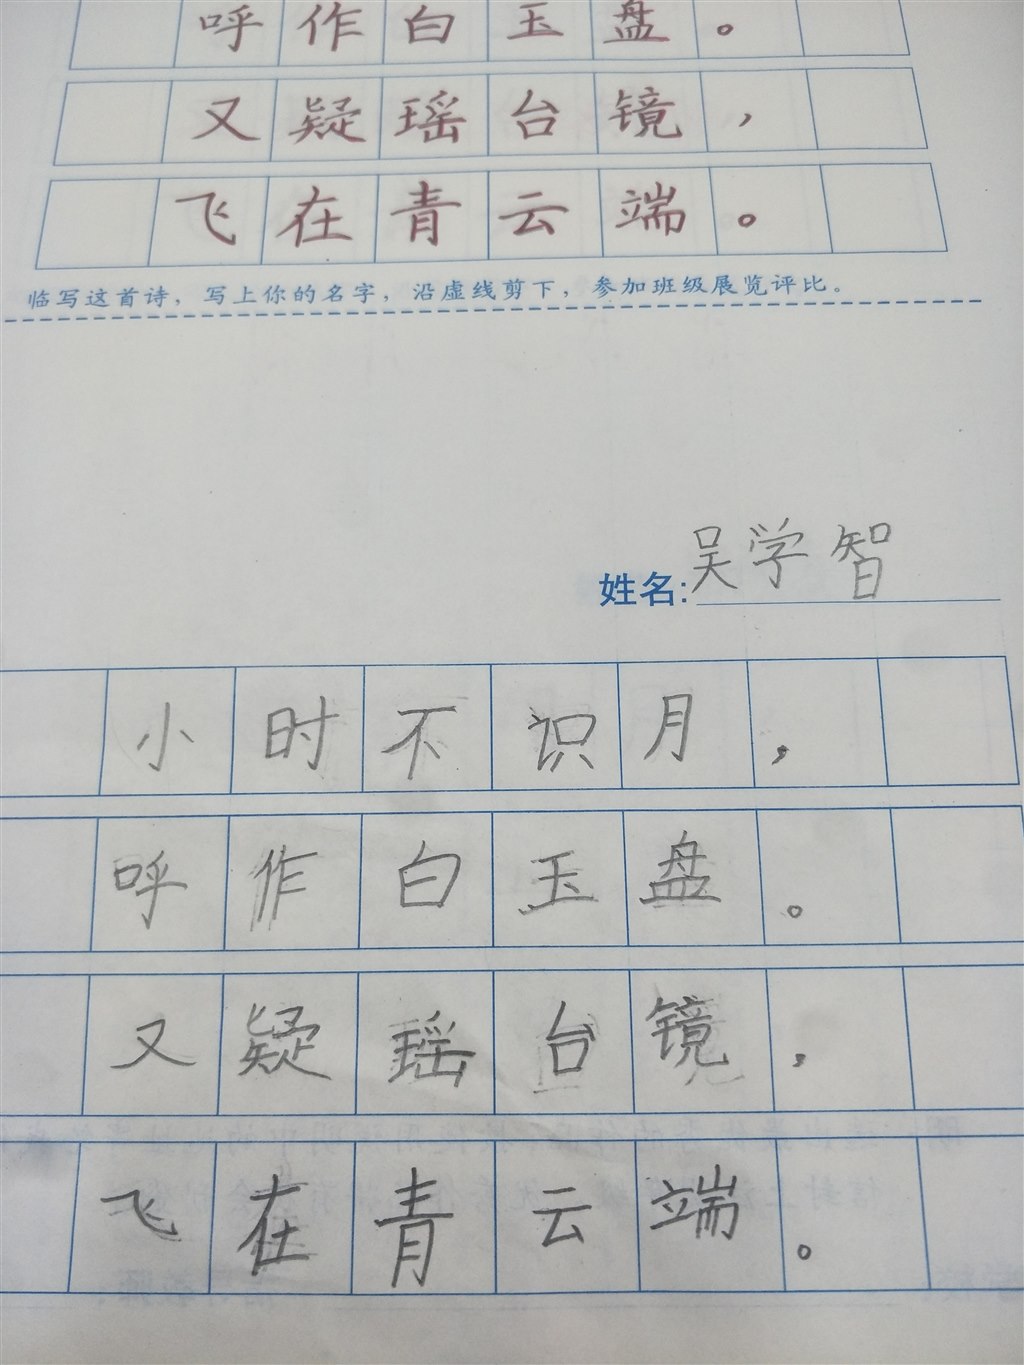 呼作白玉盘。
又疑瑶台镜，
飞在青云端。
临写这首诗，写上你的名字，沿虚线剪下，参加班级展览评比。
姓名:吴学智
小时不识月，
呼作白玉盘。
又疑瑶台镜，
飞在青云端。